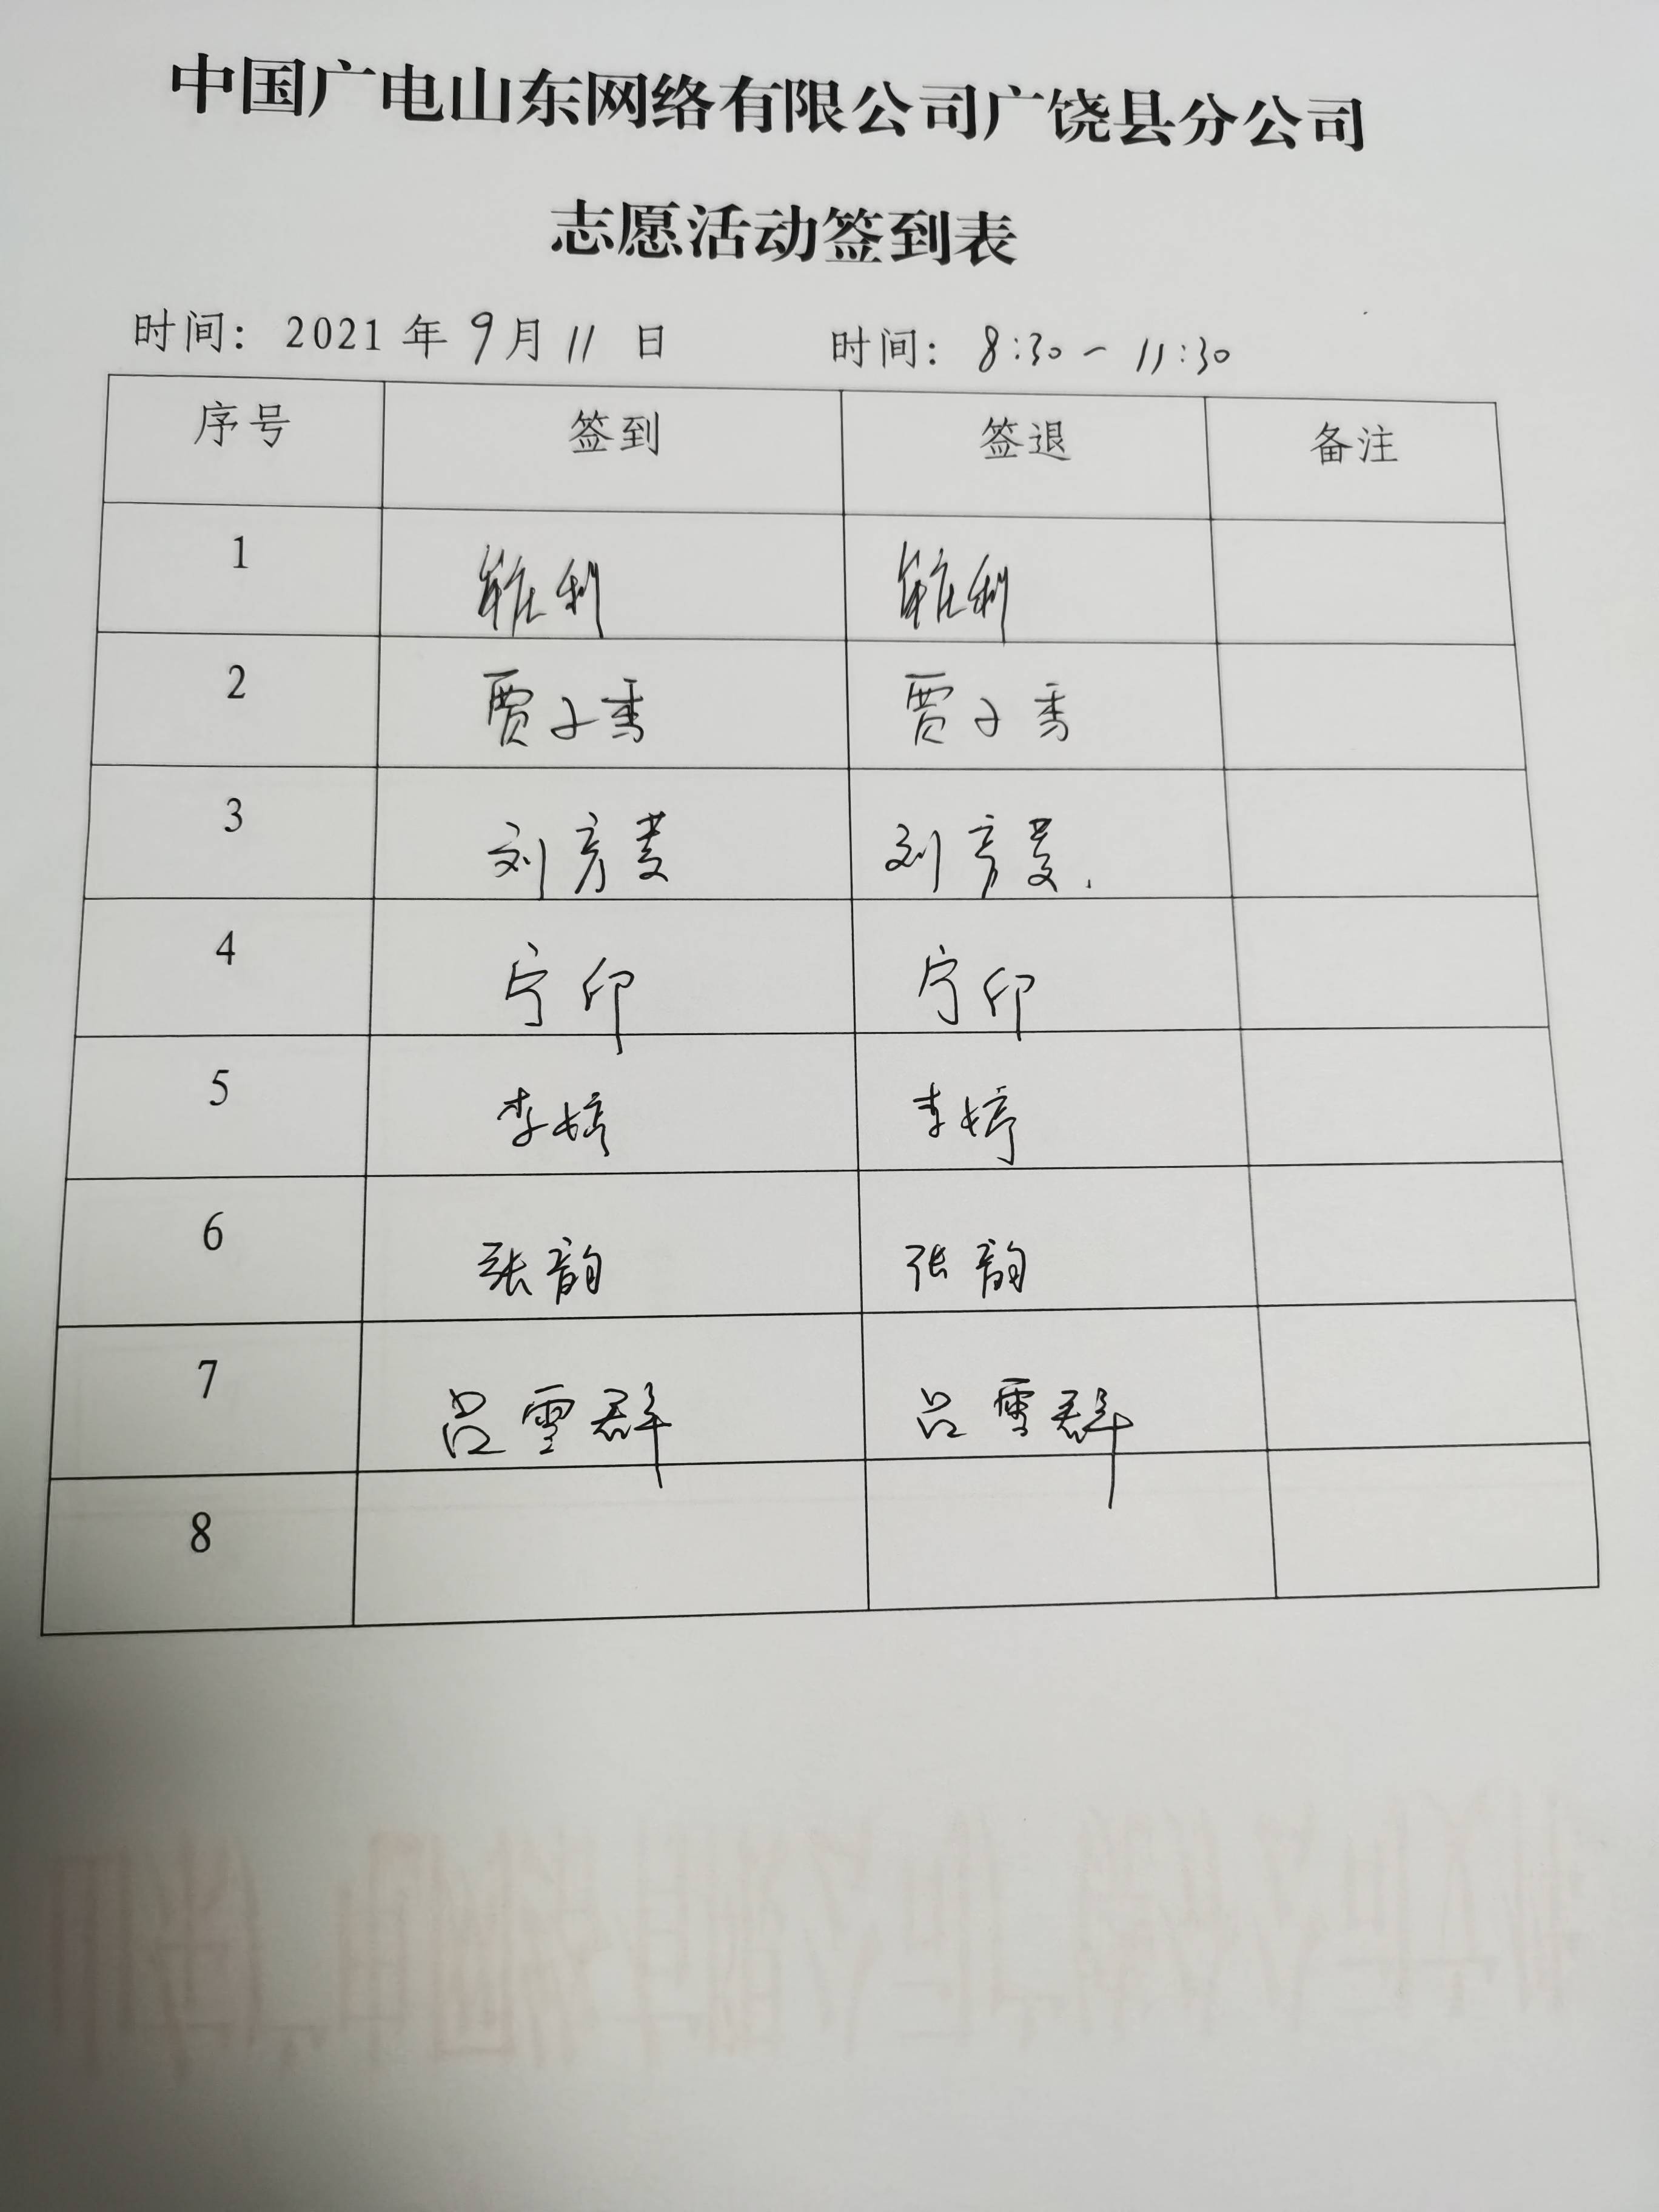 中国广电山东网络有限公司广饶县分公司
志愿活动签到表
时间：2021年9月11日 时间：8:30-11:30
序号 签到 签退 备注
1
2 贾子秀 贾子秀
3 刘彦菱 刘彦菱
4 宁印 宁印
5 李婷 李婷
6 张韵 张韵
7 吕雪群 吕雪群
8